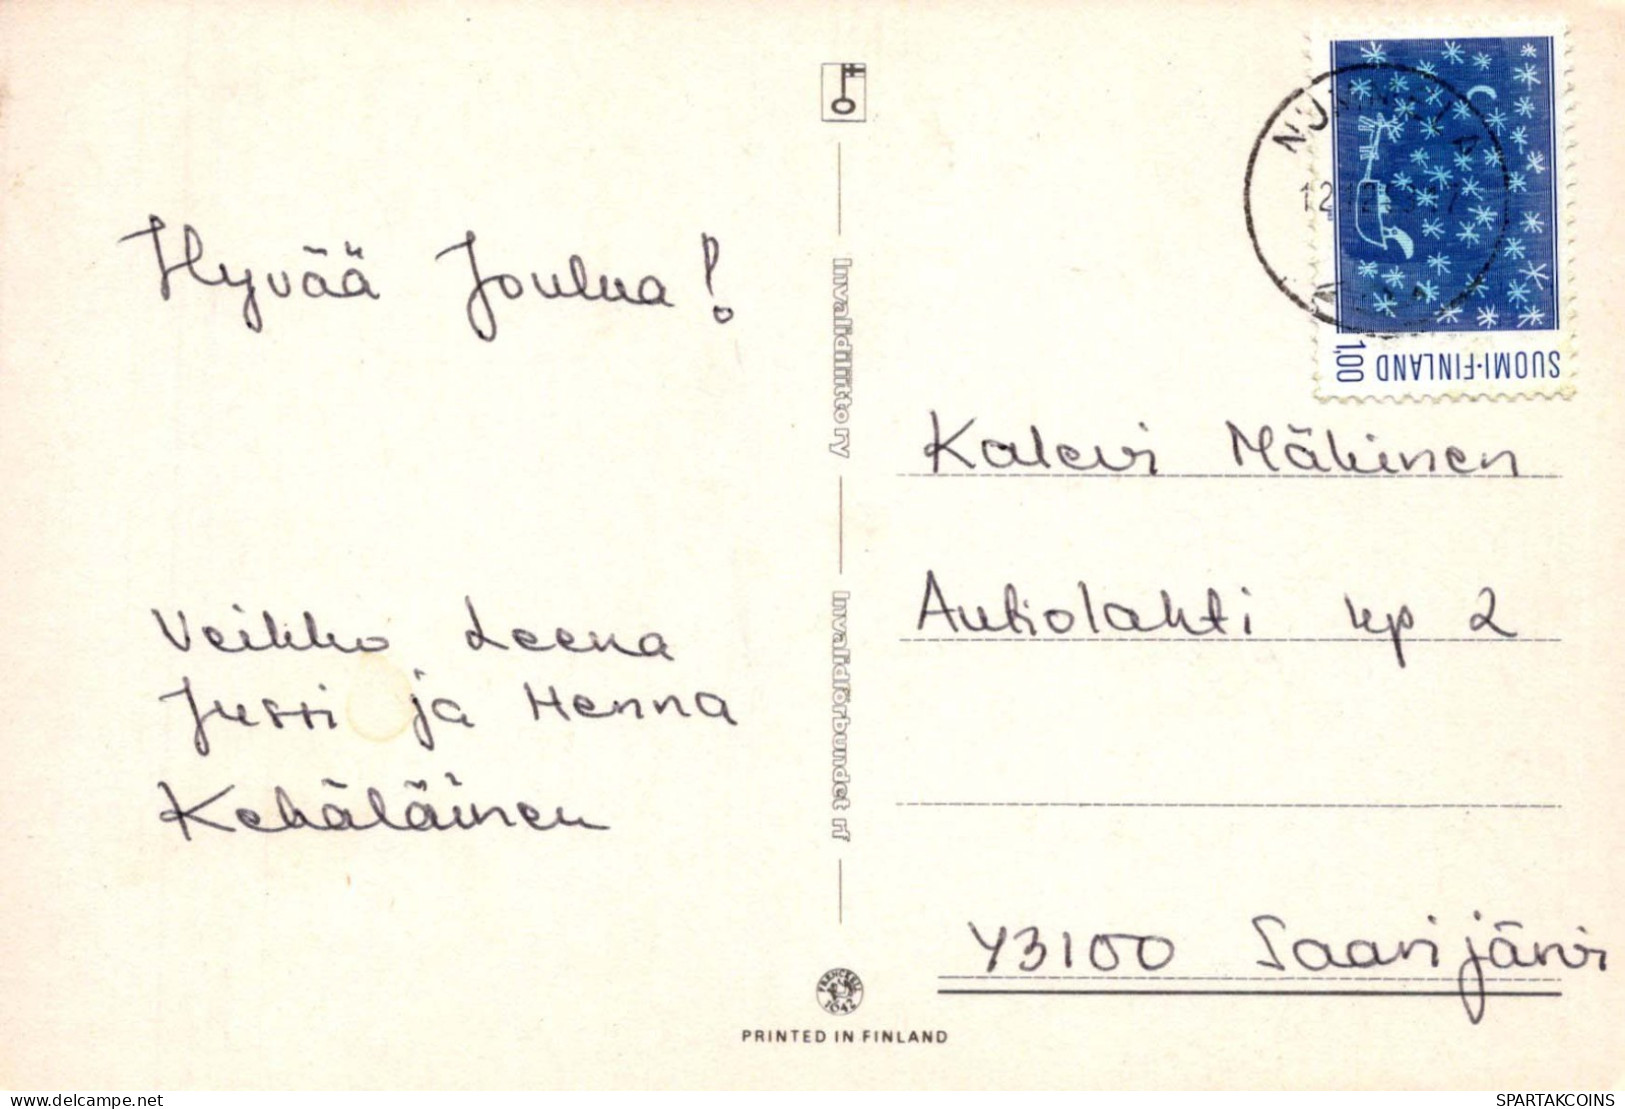 Hyvää Joulua!
Veikko Leena
Jussi ja Henna
Kehäläinen
Invalidiliitto ry
Invalidförbundet rf
FRENCKELL
1642
PRINTED IN FINLAND
NUMMELA
SUOMI-FINLAND 1,00
Kalevi Mäkinen
Autiolahti kp 2
43100 Saarijärvi
delcampe.net
SPARTAKCOINS